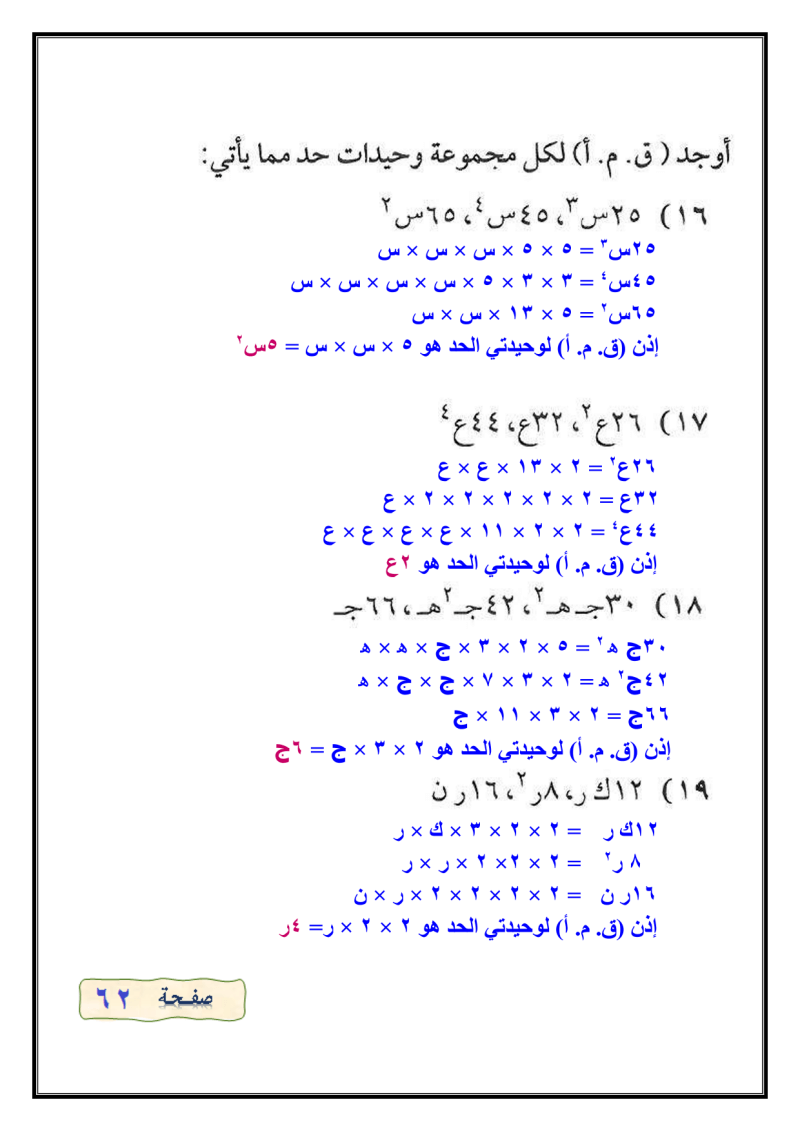 أوجد ( ق. م. أ) لكل مجموعة وحيدات حد مما يأتي:
١٦) ٢٥س٣، ٤٥س٤، ٦٥س٢
٢٥س٣ = ٥ × ٥ × س × س × س
٤٥س٤ = ٣ × ٣ × ٥ × س × س × س × س
٦٥س٢ = ٥ × ١٣ × س × س
إذن (ق. م. أ) لوحيدتي الحد هو ٥ × س × س = ٥س٢
١٧) ٢٦ع٢، ٣٢ع، ٤٤ع٤
٢٦ع٢ = ٢ × ١٣ × ع × ع
٣٢ع = ٢ × ٢ × ٢ × ٢ × ٢ × ع
٤٤ع٤ = ٢ × ٢ × ١١ × ع × ع × ع × ع
إذن (ق. م. أ) لوحيدتي الحد هو ٢ع
١٨) ٣٠جـ هـ٢، ٤٢جـ٢هـ، ٦٦جـ
٣٠ج ه٢ = ٥ × ٢ × ٣ × ج × ه × ه
٤٢ج٢ ه = ٢ × ٣ × ٧ × ج × ج × ه
٦٦ج = ٢ × ٣ × ١١ × ج
إذن (ق. م. أ) لوحيدتي الحد هو ٢ × ٣ × ج = ٦ج
١٩) ١٢ك ر، ٨ر٢، ١٦ر ن
١٢ك ر = ٢ × ٢ × ٣ × ك × ر
٨ ر٢ = ٢ × ٢× ٢ × ر × ر
١٦ر ن = ٢ × ٢ × ٢ × ٢ × ر × ن
إذن (ق. م. أ) لوحيدتي الحد هو ٢ × ٢ × ر= ٤ر
صفحة ٦٢